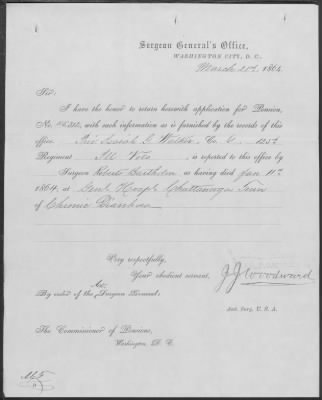 Surgeon General's Office,
WASHINGTON CITY, D. C.
March 21st, 1864
Sir:
I have the honor to return herewith application for Pension,
No. with such information as is furnished by the records of this
office. Priv Isaiah G. Walker, Co.
Regiment Ill Vols is reported to this office by
Surgeon Roberts Bartholow as having died Jany 11th
1864, at Genl Hospl Chattanooga Tenn
of Chronic Diarrhoea
Very respectfully,
Your obedient servant,
By order of the Surgeon General:
J J Woodward
Asst. Surg. U. S. A.
The Commissioner of Pensions,
Washington, D. C.